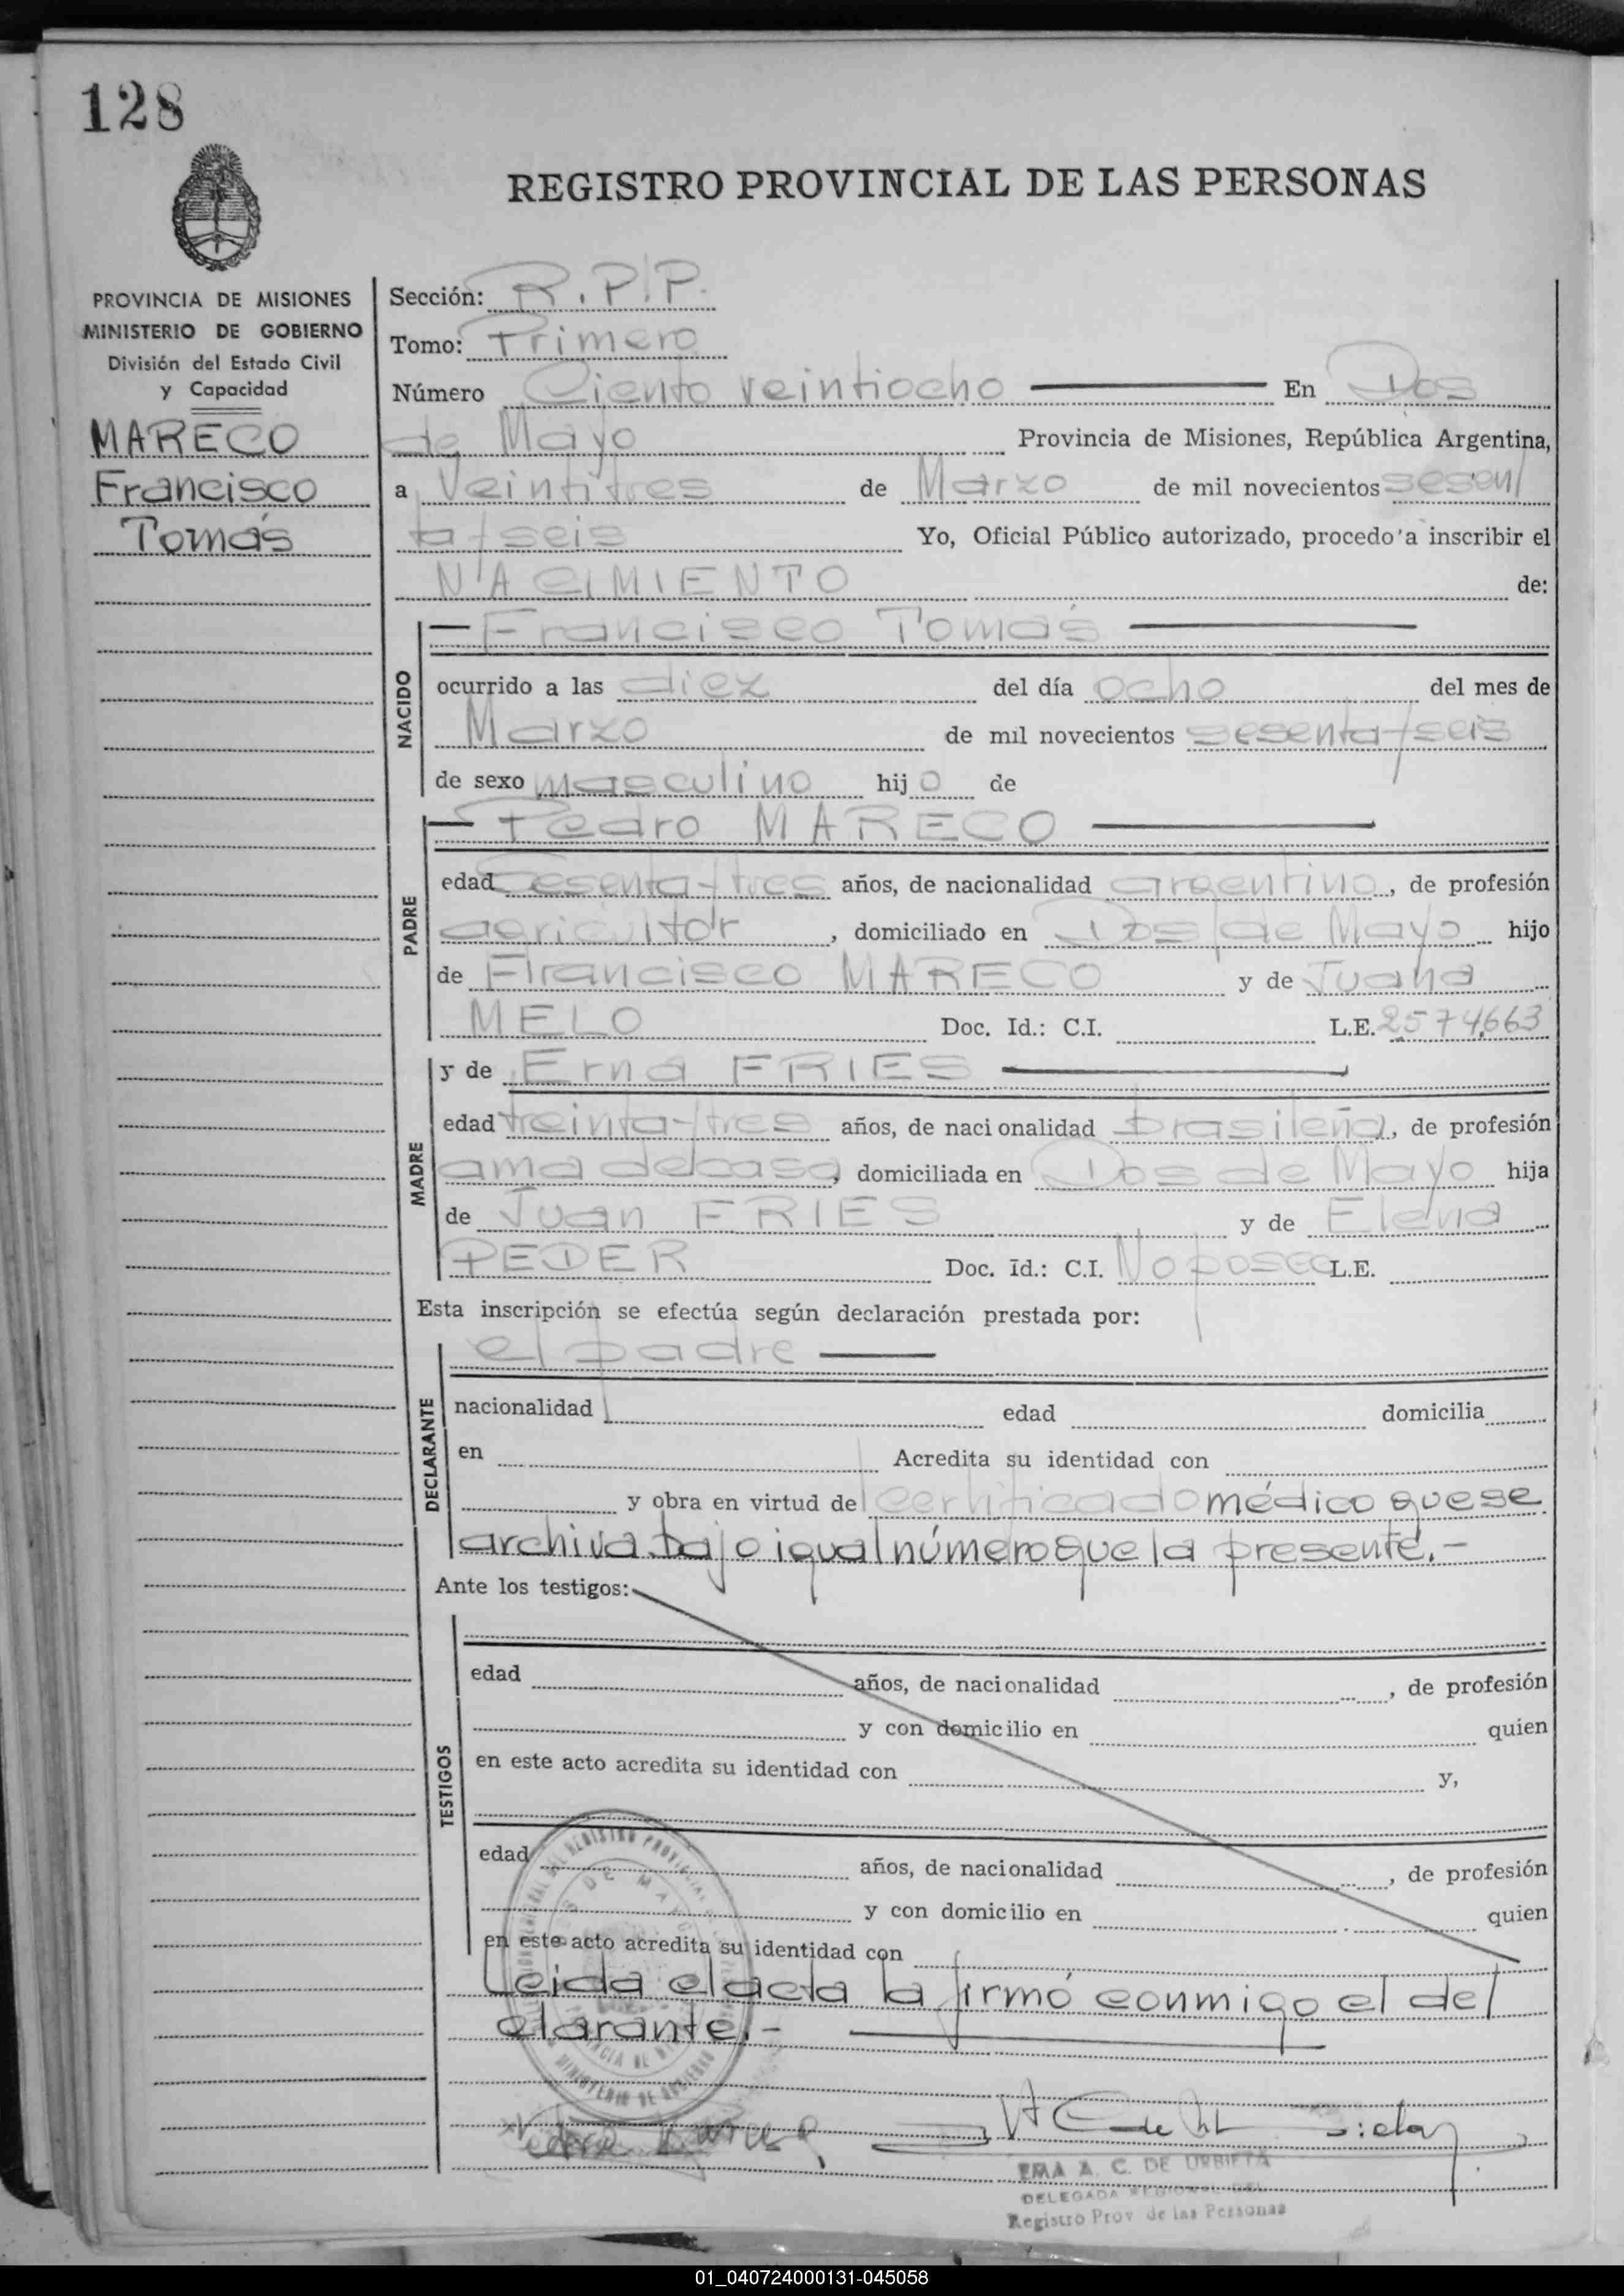 128
REGISTRO PROVINCIAL DE LAS PERSONAS
PROVINCIA DE MISIONES
MINISTERIO DE GOBIERNO
División del Estado Civil
y Capacidad
MARECO
Francisco
Tomás
Sección: R.P.P.
Tomo: Primero
Número Ciento veintiocho En Dos
de Mayo Provincia de Misiones, República Argentina,
a Veintitres de Marzo de mil novecientos sesen/
ta/seis Yo, Oficial Público autorizado, procedo a inscribir el
NACIMIENTO de:
NACIDO
— Francisco Tomás —
ocurrido a las diez del día ocho del mes de
Marzo de mil novecientos sesenta/seis
de sexo masculino hijo de
PADRE
— Pedro MARECO —
edad sesenta/tres años, de nacionalidad argentino, de profesión
agricultor, domiciliado en Dos de Mayo hijo
de Francisco MARECO y de Juana
MELO Doc. Id.: C.I. L.E. 2574,663
MADRE
y de Erna FRIES —
edad treinta/tres años, de nacionalidad brasileña, de profesión
ama de casa, domiciliada en Dos de Mayo hija
de Juan FRIES y de Elena
PEDER Doc. Id.: C.I. No posee L.E.
Esta inscripción se efectúa según declaración prestada por:
DECLARANTE
el padre —
nacionalidad edad domicilia
en Acredita su identidad con
y obra en virtud del certificado médico que se
archiva bajo igual número que la presente.-
Ante los testigos:
TESTIGOS
edad años, de nacionalidad , de profesión
y con domicilio en quien
en este acto acredita su identidad con y,
edad años, de nacionalidad , de profesión
y con domicilio en quien
en este acto acredita su identidad con
Leida el acta la firmó conmigo el de/
clarante.-
A. C. DE URBIETA
DELEGADA REGIONAL DEL
Registro Prov de las Personas
01_040724000131-045058